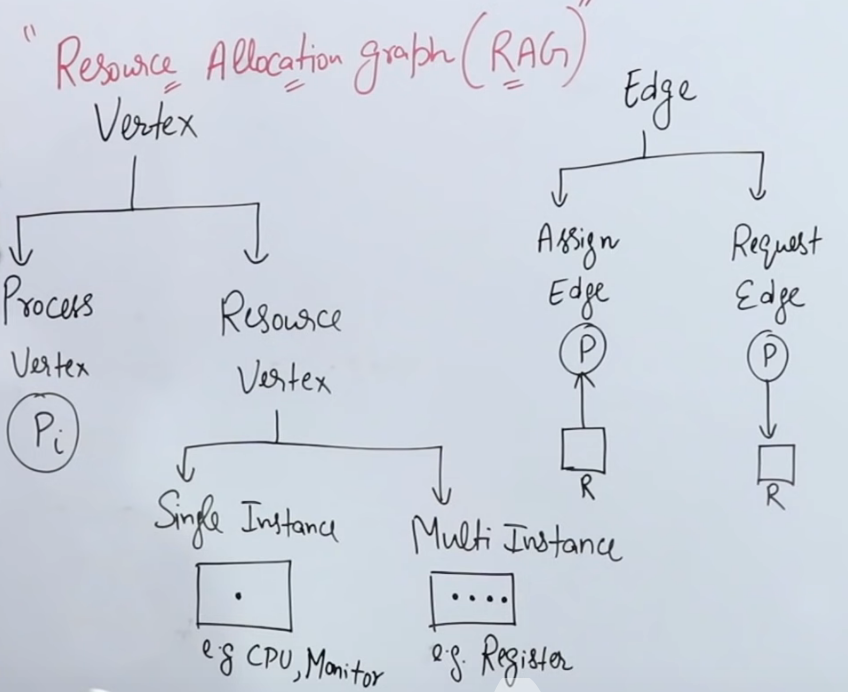 "Resource Allocation graph (RAG)"
Vertex
Process
Vertex
Pi
Resource
Vertex
Single Instance
e.g CPU, Monitor
Multi Instance
e.g. Register
Edge
Assign
Edge
P
R
Request
Edge
P
R